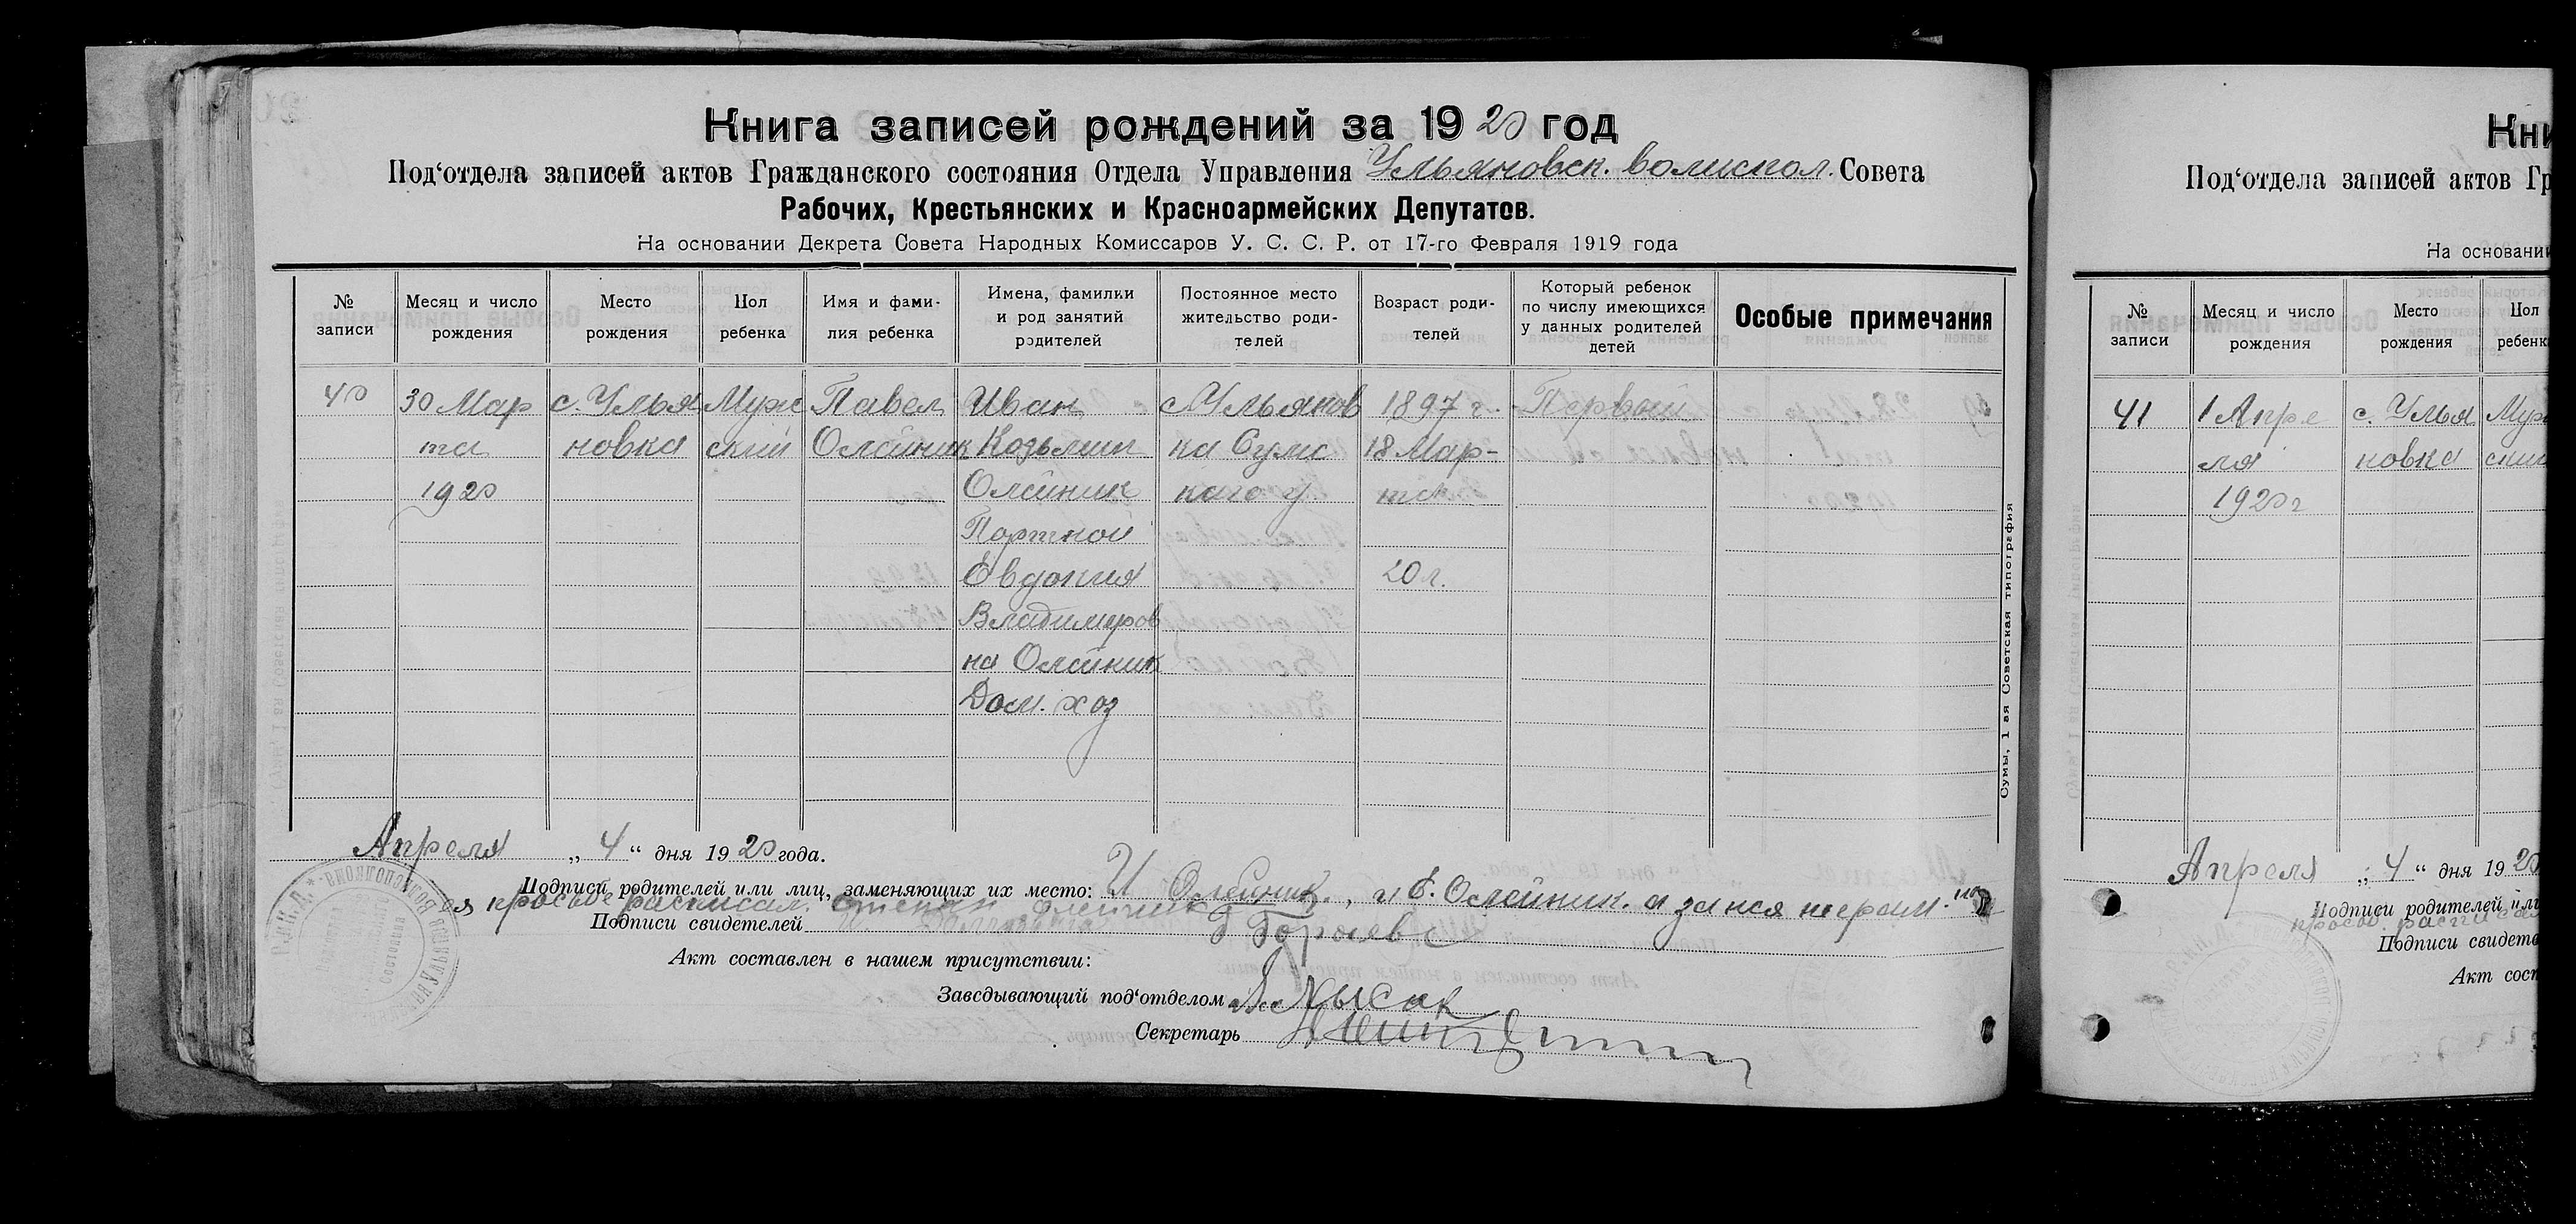 Книга записей рождений за 1920 год
Под‘отдела записей актов Гражданского состояния Отдела Управления Ульяновск. волиспол. Совета
Рабочих, Крестьянских и Красноармейских Депутатов.
На основании Декрета Совета Народных Комиссаров У. С. С. Р. от 17-го Февраля 1919 года
№ записи
Месяц и число рождения
Место рождения
Пол ребенка
Имя и фамилия ребенка
Имена, фамилки и род занятий родителей
Постоянное место жительство родителей
Возраст родителей
Который ребенок по числу имеющихся у данных родителей детей
Особые примечания
40 30 Мар с. Улья Муж Павел Иван с Ульянов 1897 г. Первый
та новка ский Олейник Козьмич ка Сумс 18 Мар-
1920 Олейник каго у та
Портной
Евдокия 20 л.
Владимиров
на Олейник
Дом. хоз
Апреля „ 4 “ дня 1920 года.
Подписи родителей или лиц, заменяющих их место: И Олейник., и Е. Олейник. а за нея неграм.
ея просьбе расписал. Степан Олейник
Подписи свидетелей
Акт составлен в нашем присутствии:
Заведывающий под‘отделом Лысак
Секретарь
Сумы, 1 ая Советская типография
Кни
Под‘отдела записей актов Гр
На основании
№ записи
Месяц и число рождения
Место рождения
Пол ребенк
41 1 Апре с. Улья Муж
ля новка ский
1920 г
Апреля „ 4 “ дня 1920
Подписи родителей или
Подписи свидете
Акт сост